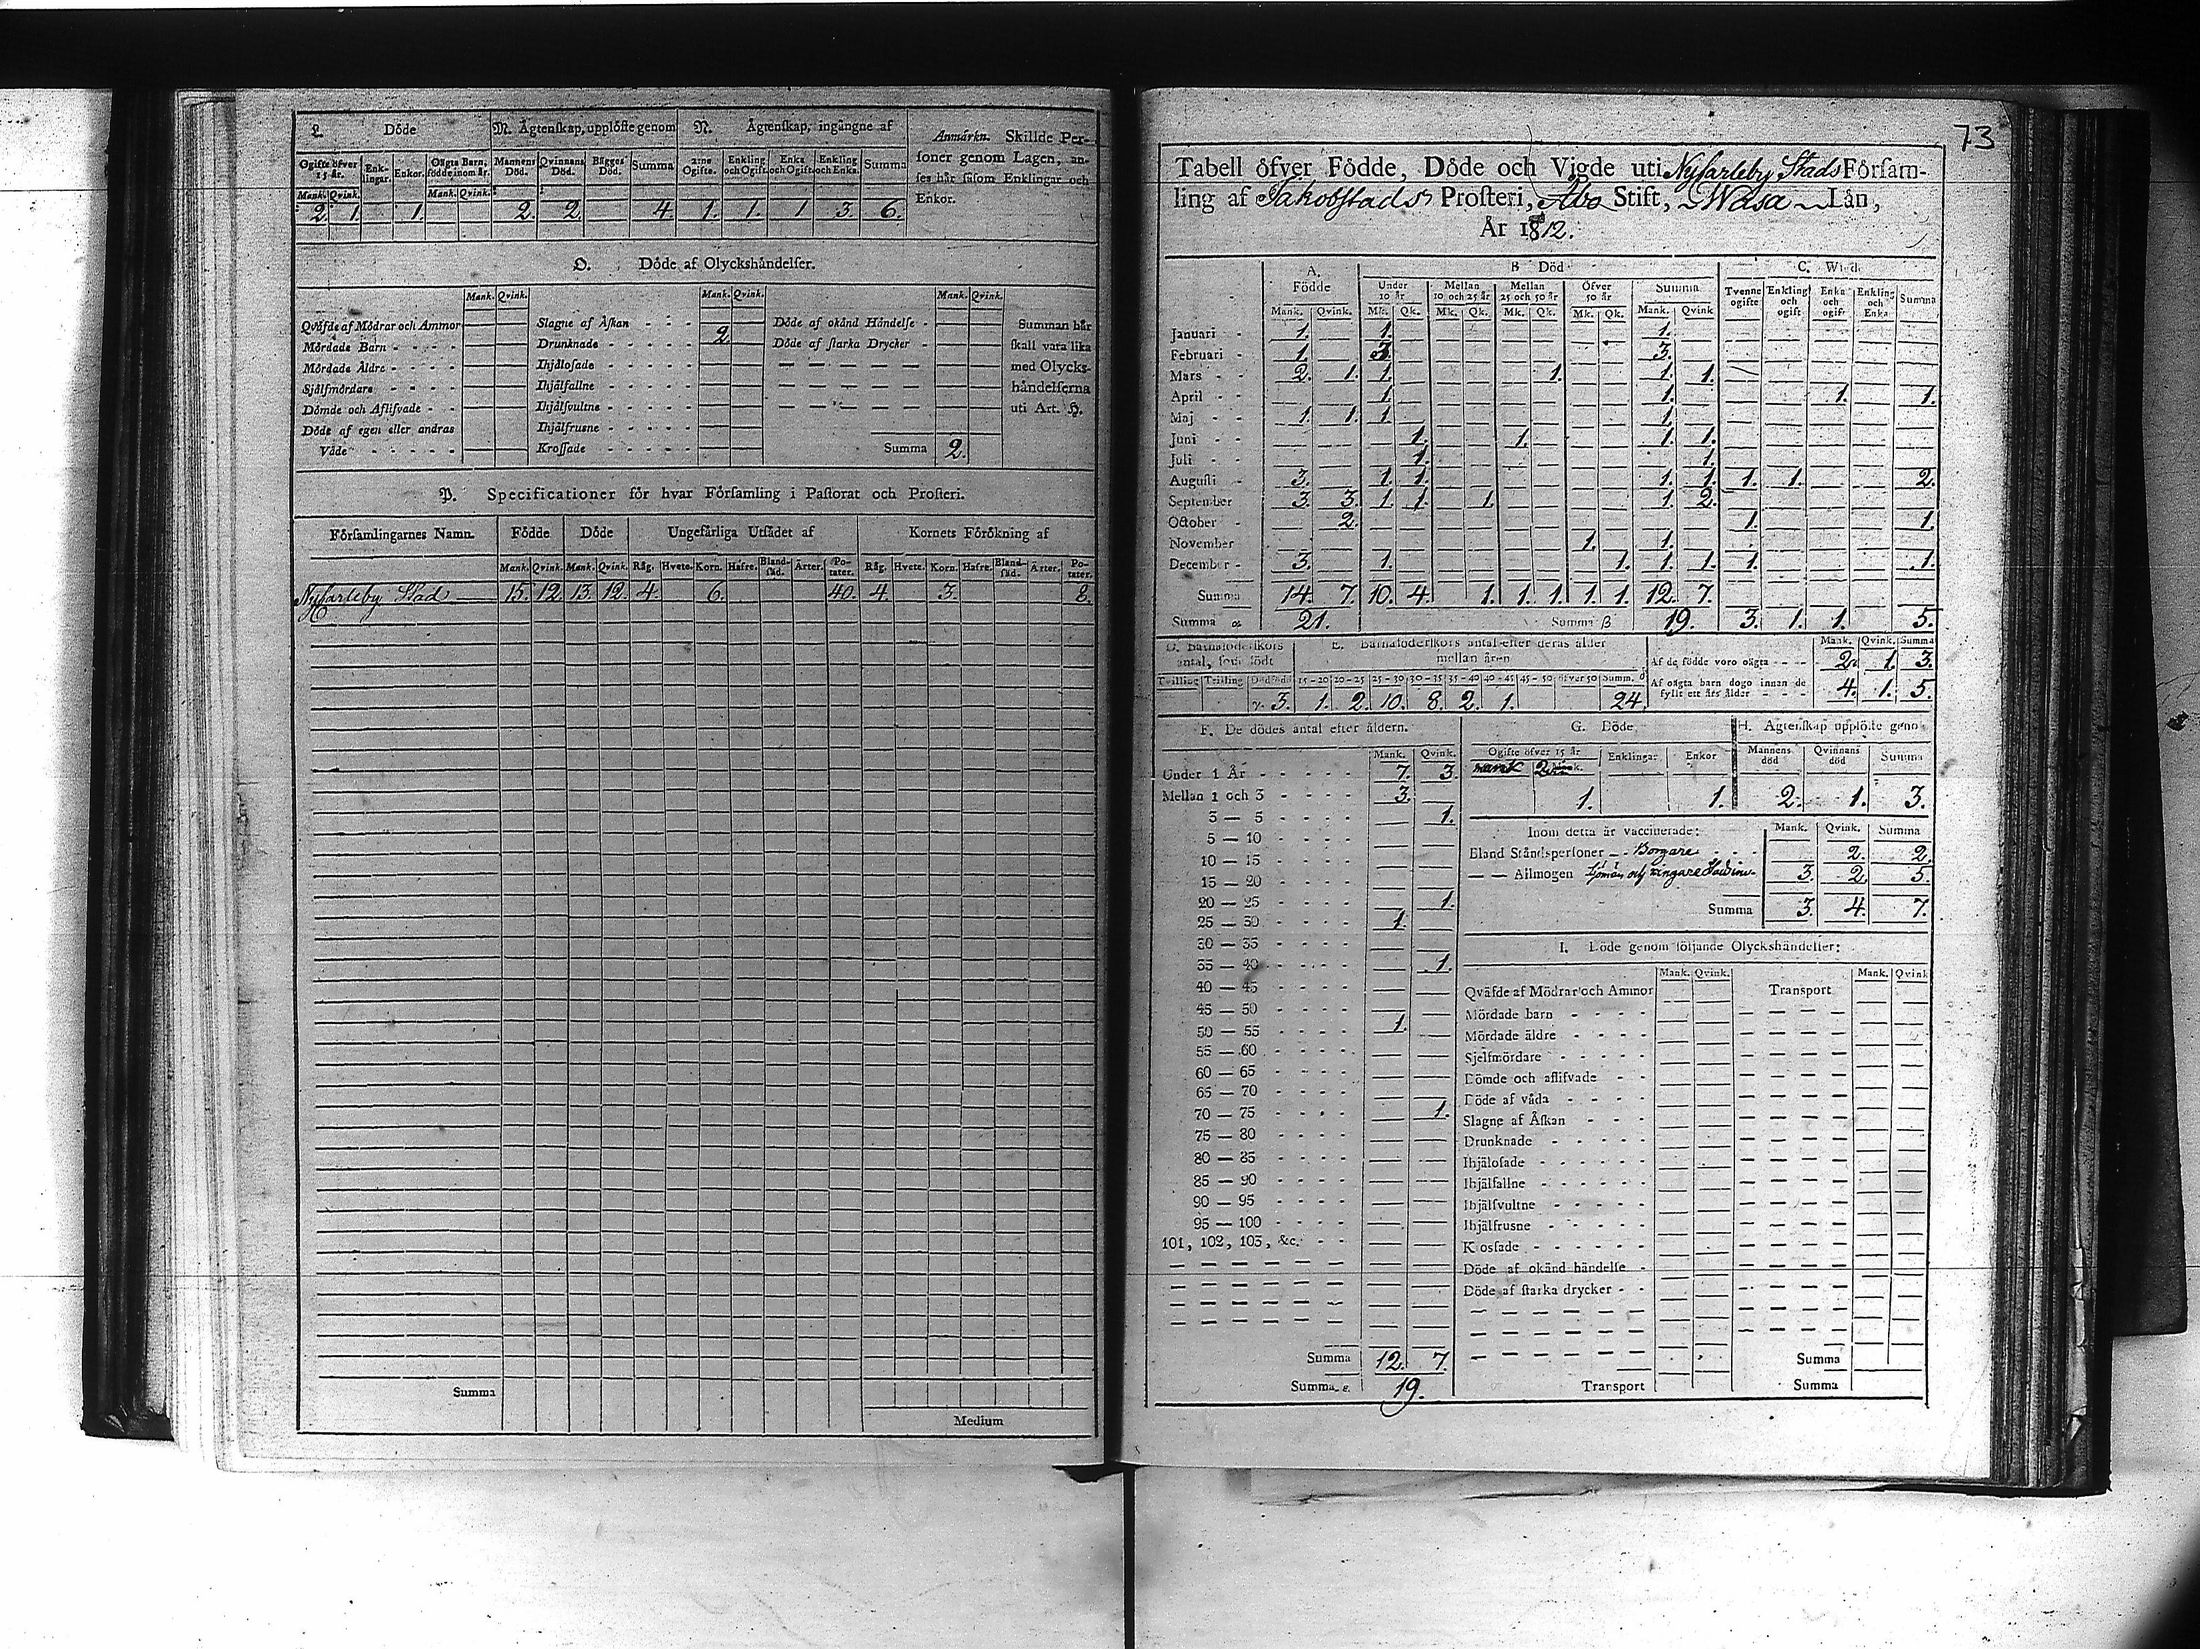 L. Döde M. Ägtenskap, upplöste genom N. Ägtenskap, ingångne af Anmärkn. Skillde Per-
soner genom Lagen, an-
ses här såsom Enklingar och
Enkor.
Ogifte öfver 15 år. Enk-lingar. Enkor. Oägta Barn, födde inom år. Mannens Död. Qvinnans Död. Bägges Död. Summa 2:ne Ogifte. Enkling och Ogift. Enka och Ogift. Enkling och Enka. Summa
Mank. Qvink. Mank. Qvink.
2. 1. 1. 2. 2. 4. 1. 1. 1 3. 6.
O. Döde af Olyckshändelser.
Mank. Qvink. Mank. Qvink. Mank. Qvink.
Qväfde af Mödrar och Ammor Slagne af Åskan Döde af okänd Händelse Summan här
Mördade Barn Drunknade 2. Döde af starka Drycker skall vara lika
Mördade Äldre Ihjälosade med Olycks-
Sjelfmördare Ihjälfallne händelserna
Dömde och Aflifvade Ihjälsvultne uti Art. H.
Döde af egen eller andras Ihjälfrusne
Våde Krossade Summa 2.
P. Specificationer för hvar Församling i Pastorat och Prosteri.
Församlingarnes Namn. Födde Döde Ungefärliga Utsädet af Kornets Förökning af
Mank. Qvink. Mank. Qvink. Råg. Hvete. Korn. Hafre. Bland-säd. Ärter. Po-tater. Råg. Hvete. Korn. Hafre. Bland-säd. Ärter. Po-tater.
Nycarleby Stad 15. 12. 13. 12. 4. 6. 40. 4. 3. 8.
Summa
Medium
73
Tabell öfver Födde, Döde och Vigde uti Nycarleby Stads Försam-
ling af Jakobstads Prosteri, Åbo Stift, Wasa Län,
År 1812.
A. Födde B Död C. Wigde
Under 10 år Mellan 10 och 25 år Mellan 25 och 50 år Öfver 50 år Summa Tvenne ogifte Enkling och ogift Enka och ogift Enkling och Enka Summa
Mank. Qvink. Mk. Qk. Mk. Qk. Mk. Qk. Mk. Qk. Mank. Qvink
Januari 1. 1. 1.
Februari 1. 3. 3.
Mars 2. 1. 1. 1. 1. 1.
April 1. 1. 1. 1.
Maj 1. 1. 1. 1.
Juni 1. 1. 1. 1.
Juli 1. 1.
Augusti 3. 1. 1. 1. 1. 1. 1. 2.
September 3. 3. 1. 1. 1. 1. 2.
October 2. 1. 1.
November 1. 1.
December 3. 1. 1. 1. 1. 1. 1.
Summa 14. 7. 10. 4. 1. 1. 1. 1. 1. 12. 7.
Summa α 21. Summa β 19. 3. 1. 1. 5.
D. Barnaföderskors antal, som födt E. Barnaföderskors antal efter deras ålder mellan åren Mank. Qvink. Summa
Tvilling Trilling Dödfödd 15-20 20-25 25-30 30-35 35-40 40-45 45-50 öfver 50 Summ.
Af de födde voro oägta 2. 1. 3.
Af oägta barn dogo innan de
fyllt ett års ålder 4. 1. 5.
γ. 3. 1. 2. 10. 8. 2. 1. 24.
F. De dödes antal efter åldern.
Mank. Qvink.
Under 1 År 7. 3.
Mellan 1 och 3 3.
3 — 5 1.
5 — 10
10 — 15
15 — 20
20 — 25 1.
25 — 30 1.
30 — 35
35 — 40 1.
40 — 45
45 — 50
50 — 55 1.
55 — 60
60 — 65
65 — 70
70 — 75 1.
75 — 80
80 — 85
85 — 90
90 — 95
95 — 100
101, 102, 103, &c.
Summa 12. 7.
Summa ε. 19.
G. Döde H. Ägtenskap upplöste genom
Ogifte öfver 15 år Enklingar Enkor Mannens död Qvinnans död Summa
1. 1. 2. 1. 3.
Inom detta år vaccinerade: Mank. Qvink. Summa
Bland Ståndspersoner Borgare 2. 2.
— — Allmogen 3. 2. 5.
Summa 3. 4. 7.
I. Döde genom följande Olyckshändelser:
Mank. Qvink. Mank. Qvink
Qväfde af Mödrar och Ammor Transport
Mördade barn
Mördade äldre
Sjelfmördare
Dömde och aflifvade
Döde af våda
Slagne af Åskan
Drunknade
Ihjälosade
Ihjälfallne
Ihjälsvultne
Ihjälfrusne
Krossade
Döde af okänd händelse
Döde af starka drycker
Summa
Transport Summa